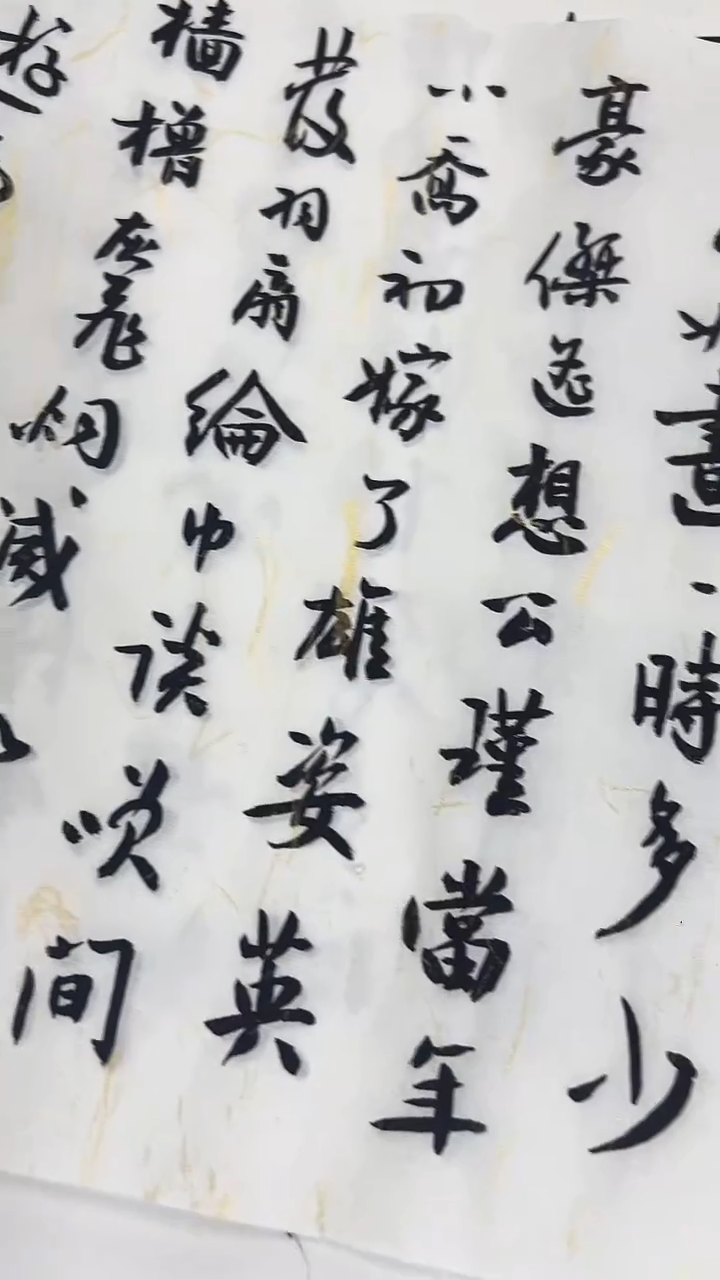 畫一時多少
豪傑遙想公瑾當年
小喬初嫁了雄姿英
發羽扇綸巾談咲間
檣櫓灰飛烟滅
遊